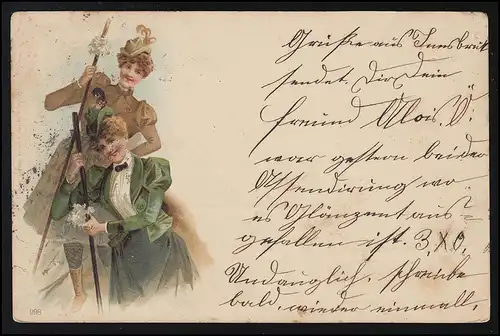 Grüße aus Innsbruck
sendet Dir Dein
freund Alois. Ö.
war gestern bei der
Assendirung wo
es Glänzent aus-
gefallen ist. 3 X 0.
Undauglich, schreibe
bald wieder einmall,
999